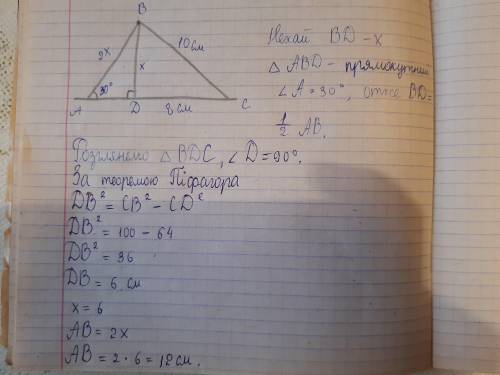 B
2x
x
10 см
30°
A
D
8 см
C
Нехай BD - x
△ ABD - прямокутний
∠A = 30°, отже BD =
1/2 AB.
Розглянемо △ BDC, ∠D = 90°.
За теоремою Піфагора
DB² = CB² - CD²
DB² = 100 - 64
DB² = 36
DB = 6 см
x = 6
AB = 2x
AB = 2 · 6 = 12 см.